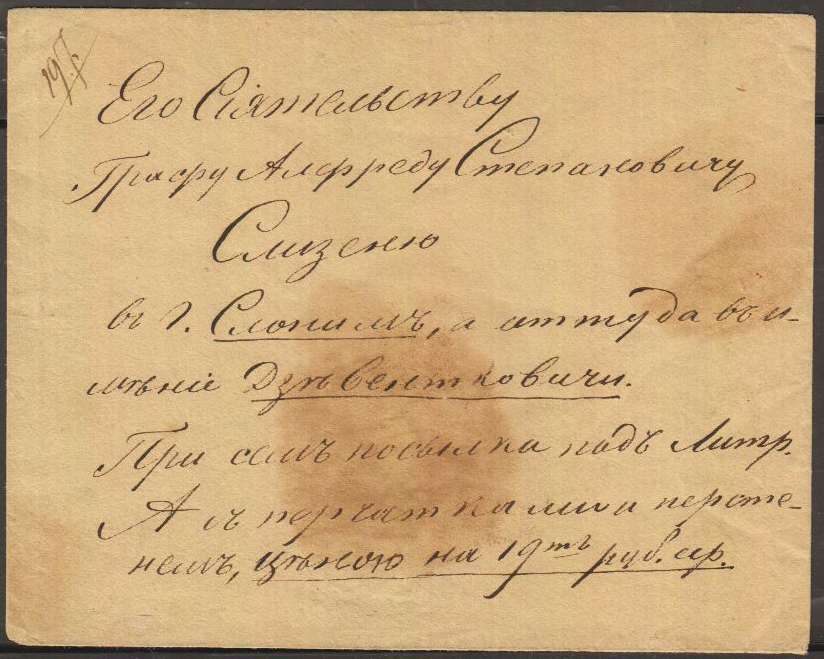 19 р.
Его Сіятельству
Графу Алфреду Степановичу
Слизеню
въ г. Слонимъ, а оттуда въ и-
мѣніе Дзѣвентковичи.
При семъ посылка подъ Литр.
А съ перчатками и персте-
немъ, цѣною на 19ть руб. сер.